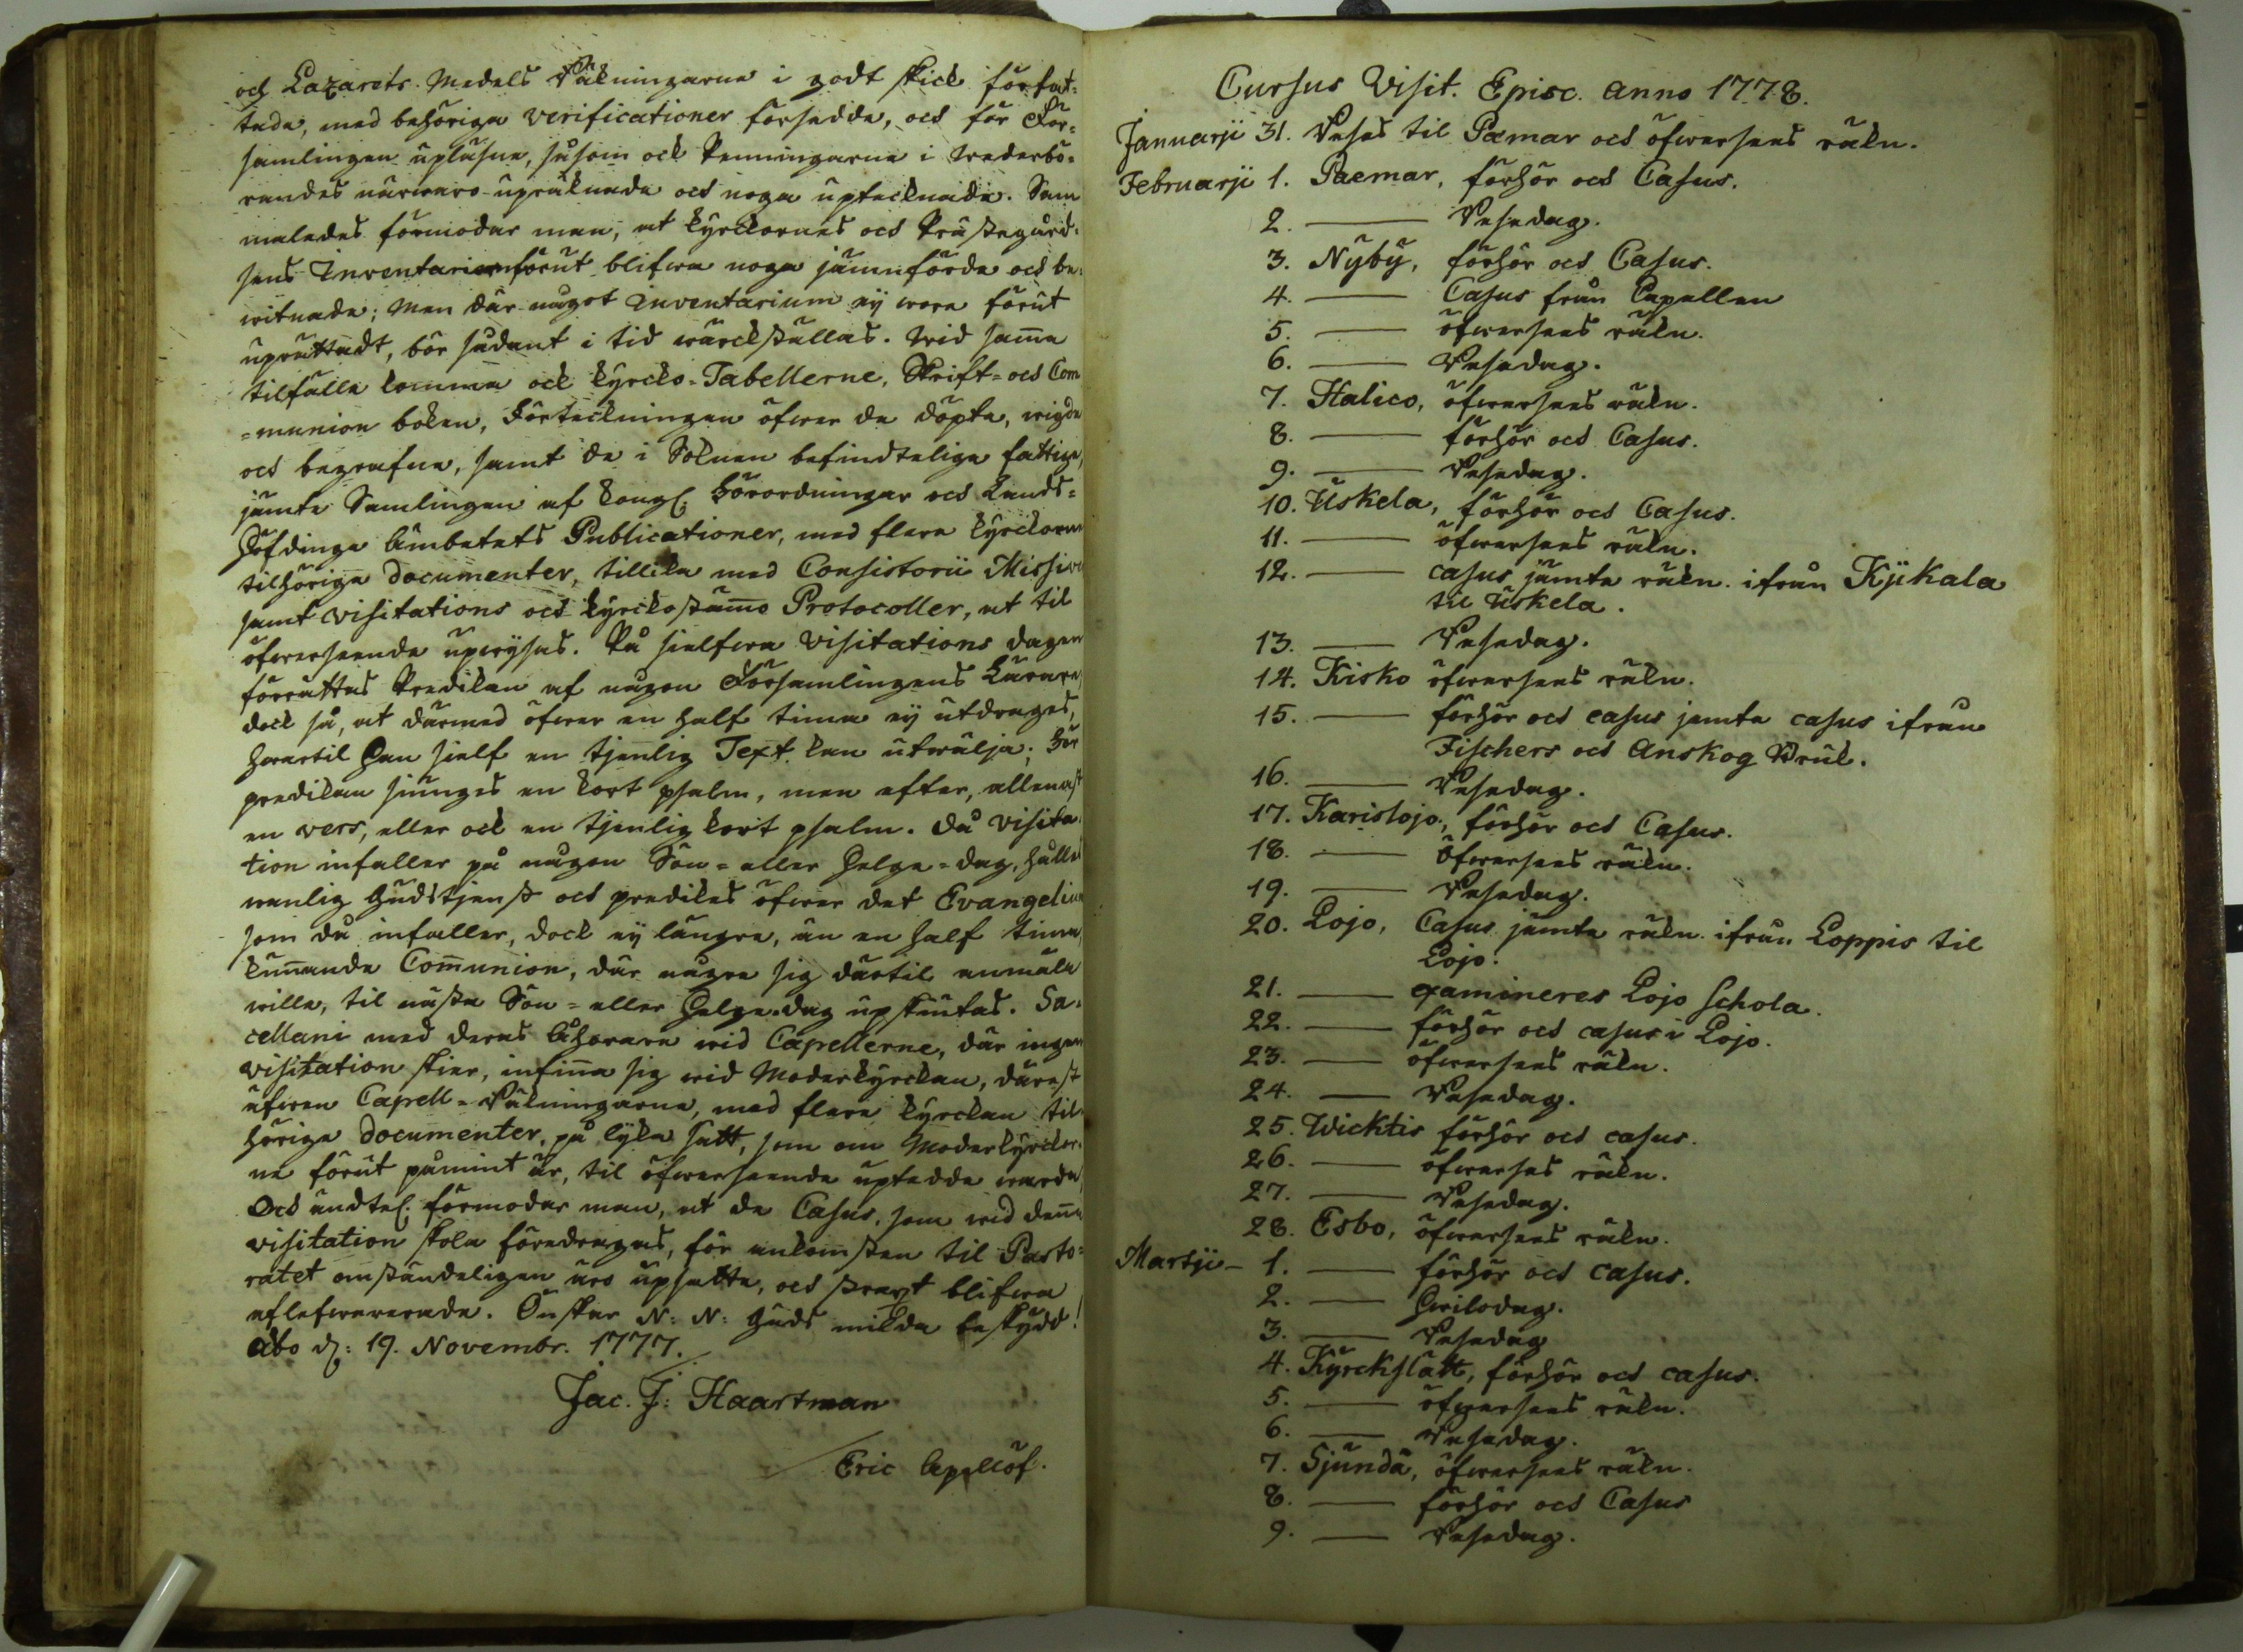 och Lazarets-Medels Räkningarne i godt skick förfat-
tade, med behöriga verificationer försedde, och för För-
samlingen upläsne, såsom ock Penningarne i wederbö-
randes närwaro upräknade och noga uptecknade. Sam
maledes förmodar man, at kyrckornes och Prästegård-
sens Inventarier förut blifwa noga jämnförde och be-
witnade; Men där något Inventarium ej wore förut
uprättadt, bör sådant i tid wärckställas. Wid samma
tilfälle komma ock kyrcko-Tabellerne, Skrift- och Com
=munion boken, Förteckningen öfwer de döpta, wigde
och begrafne, samt de i Soknen befindtelige fattige,
jämte Samlingen af Kongl. Förordningar och Lands-
höfdinge Ämbetets Publicationer, med flere kyrckorne
tilhörige documenter, tillika med Consistorii Missive
samt visitations och kyrckostämmo Protocoller, at til
öfwerseende upwijsas. På sielfwa Visitations dagen
förrättas Predikan af någon Församlingens Lärare,
dock så, at därmed öfwer en half tima ej utdrages,
hwartil han sielf en tjenlig Text kan utwälja; För
predikan siunges en kort psalm, men efter, allenast
en vers, eller ock en tjenlig kort psalm. Då Visita-
tion infaller på någon Sön- eller Helge-dag, hålles
wanlig Gudstjenst och predikes öfwer det Evangelium
som då infaller, dock ej längre, än en half tima,
kunnande Communion, där någre sig därtil anmäla
wille, til nästa Sön- eller Helge-dag upskiutas. Sa-
cellani med deras åhörare wid Capellerne, där ingen
visitation skier, infinna sig wid Moderkyrckan, därest
äfwen Capell-Räkningarne, med flere kyrckan til-
hörige documenter, på lyka sätt, som om Moderkyrckor-
ne förut påmint är, til öfwerseende uptedde warda,
Och ändtel. förmodar man, at de Casus, som wid denna
visitation skola föredragas, för ankomsten til Pasto-
ratet omständeligen äro upsatte, och straxt blifwa
aflefwererade. Önskar N: N: Guds milda beskydd!
Åbo d: 19. Novembr. 1777.
Jac. J: Haartman
Eric Apellöf.
Cursus Visit. Episc. Anno 1778.
Januarji 31. Reses til Pæmar och öfwersees räkn.
Februarji 1. Paemar, förhör och Casus.
2. —— Resedag.
3. Nyby, förhör och Casus.
4. —— Casus från Capellen
5. —— öfwersees räkn.
6. —— Resedag.
7. Halico, öfwersees räkn.
8. —— förhör och Casus.
9. —— Resedag.
10. Uskela, förhör och Casus.
11. —— öfwersees räkn.
12. —— casus jämte räkn. ifrån Kjikala
til Uskela.
13. —— Resedag.
14. Kisko öfwersees räkn.
15. —— förhör och casus jemte casus ifrån
Fischers och Anskog Bruk.
16. —— Resedag.
17. Karislojo, förhör och Casus.
18. —— Öfwersees räkn.
19. —— Resedag.
20. Lojo, Casus jämte räkn. ifrån Loppis til
Lojo.
21. —— examineres Lojo Schola.
22. —— förhör och casus i Lojo.
23. —— öfwersees räkn.
24. —— Resedag.
25. Wicktis förhör och casus.
26. —— öfwerses räkn.
27. —— Resedag.
28. Esbo, öfwersees räkn.
Martji - 1. —— förhör och casus.
2. —— Hwilodag.
3. —— Resedag
4. Kyrckslätt, förhör och casus.
5. —— öfwersees räkn.
6. —— Resedag.
7. Sjundå, öfwersees räkn.
8. —— förhör och Casus
9. —— Resedag.